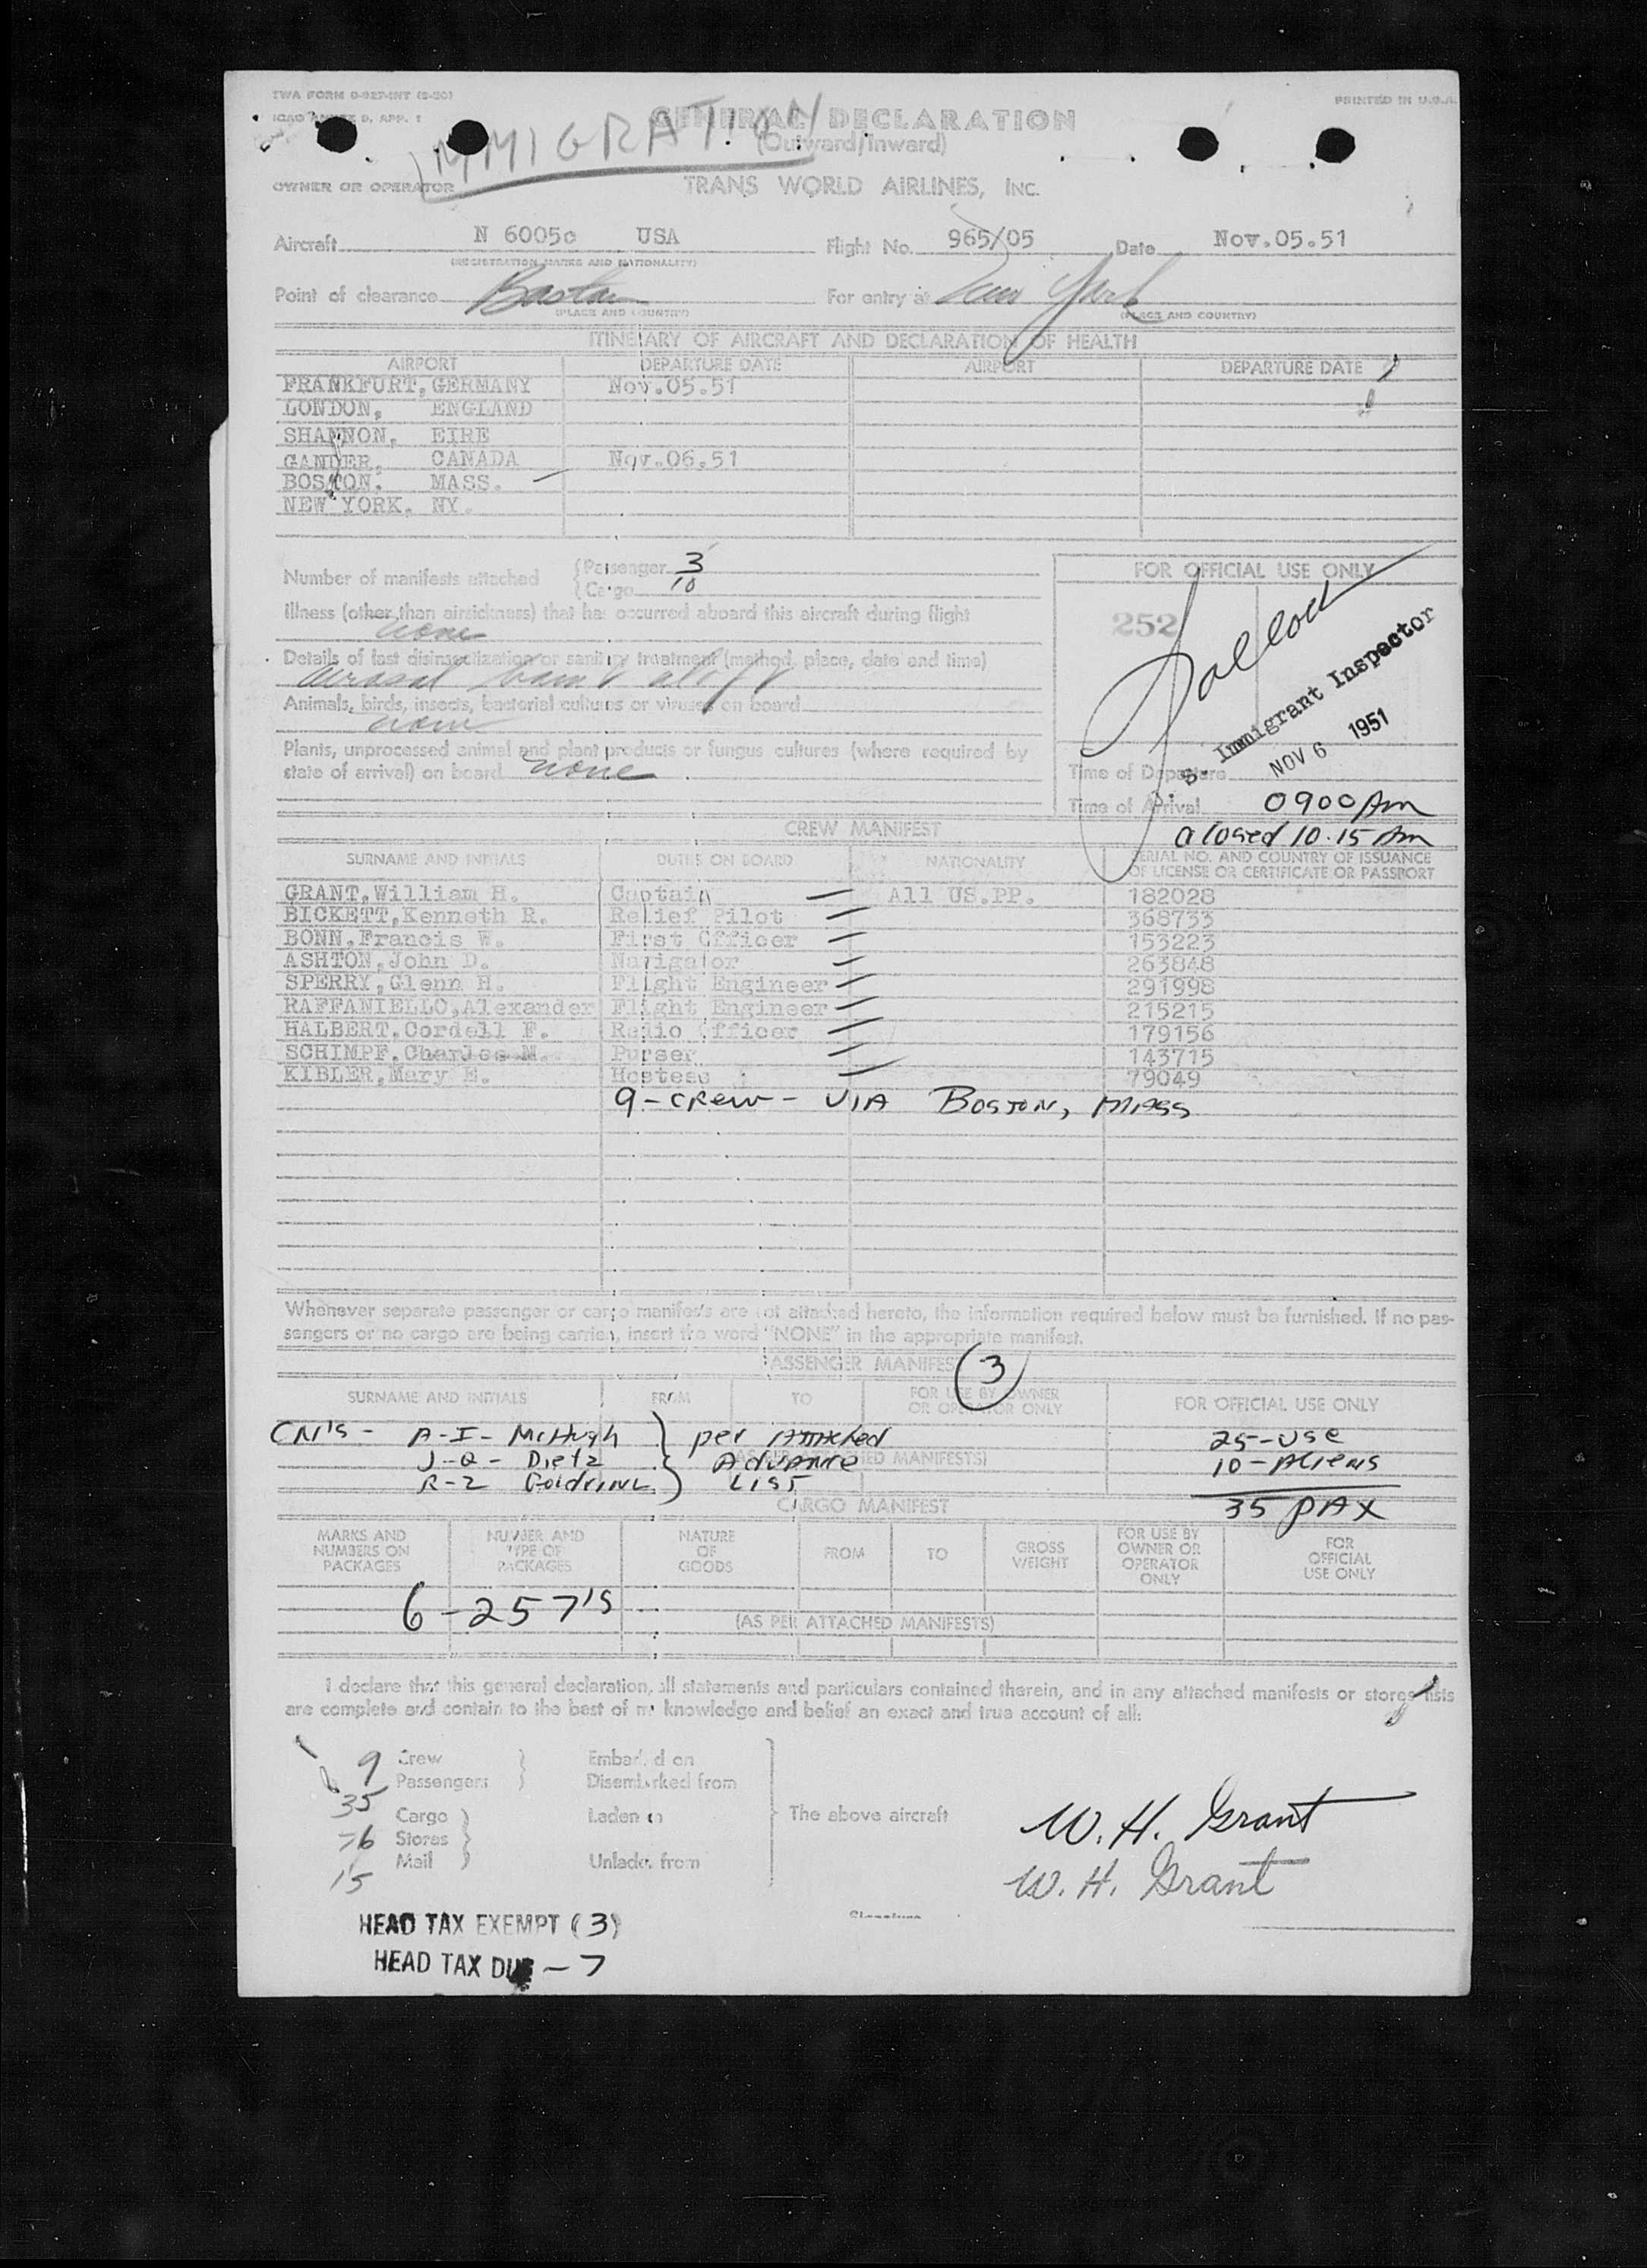 TWA FORM 0-927-INT (5-50)
PRINTED IN U.S.A.
ICAO ANNEX 9, APP. 1
GENERAL DECLARATION
IMMIGRATION
(Outward/Inward)
OWNER OR OPERATOR
TRANS WORLD AIRLINES, INC.
Aircraft N 6005c USA Flight No. 965/05 Date Nov.05.51
(REGISTRATION MARKS AND NATIONALITY)
Point of clearance Boston For entry at New York
(PLACE AND COUNTRY) (PLACE AND COUNTRY)
ITINERARY OF AIRCRAFT AND DECLARATION OF HEALTH
AIRPORT DEPARTURE DATE AIRPORT DEPARTURE DATE
FRANKFURT, GERMANY Nov.05.51
LONDON, ENGLAND
SHANNON, EIRE
GANDER, CANADA Nov.06.51
BOSTON. MASS.
NEW YORK. NY.
Number of manifests attached
Passenger 3
Cargo 10
FOR OFFICIAL USE ONLY
Illness (other than airsickness) that has occurred aboard this aircraft during flight
none
252
Details of last disinsectization or sanitary treatment (method, place, date and time)
aerosol bomb aloft
Animals, birds, insects, bacterial cultures or viruses on board
none
Plants, unprocessed animal and plant products or fungus cultures (where required by
state of arrival) on board none
S. Immigrant Inspector
NOV 6 1951
Time of Departure
Time of Arrival 0900 Am
closed 10.15 Am
CREW MANIFEST
SURNAME AND INITIALS DUTIES ON BOARD NATIONALITY SERIAL NO. AND COUNTRY OF ISSUANCE
OF LICENSE OR CERTIFICATE OR PASSPORT
GRANT,William H. Captain All US.PP. 182028
BICKETT,Kenneth R. Relief Pilot 368733
BONN,Francis W. First Officer 153223
ASHTON,John D. Navigator 263848
SPERRY,Glenn H. Flight Engineer 291998
RAFFANIELLO,Alexander Flight Engineer 215215
HALBERT,Cordell F. Radio Officer 179156
SCHIMPF,Charles M. Purser 143715
KIBLER,Mary E. Hostess 79049
9-crew- VIA BOSTON, MASS
Whenever separate passenger or cargo manifests are not attached hereto, the information required below must be furnished. If no pas-
sengers or no cargo are being carried, insert the word "NONE" in the appropriate manifest.
PASSENGER MANIFEST 3
SURNAME AND INITIALS FROM TO FOR USE BY OWNER
OR OPERATOR ONLY FOR OFFICIAL USE ONLY
CM's - A-I- McHugh per Attached 25-USC
J-Q- Dietz Advance (AS PER ATTACHED MANIFESTS) 10-Aliens
R-Z LIST
35 PAX
CARGO MANIFEST
MARKS AND
NUMBERS ON
PACKAGES
NUMBER AND
TYPE OF
PACKAGES
NATURE
OF
GOODS
FROM
TO
GROSS
WEIGHT
FOR USE BY
OWNER OR
OPERATOR
ONLY
FOR
OFFICIAL
USE ONLY
6-257's
(AS PER ATTACHED MANIFESTS)
I declare that this general declaration, all statements and particulars contained therein, and in any attached manifests or stores lists
are complete and contain to the best of my knowledge and belief an exact and true account of all:
9 Crew Embarked on
35 Passengers Disembarked from
Cargo Laden on The above aircraft W. H. Grant
76 Stores
15 Mail Unladen from
W. H. Grant
Signature
HEAD TAX EXEMPT (3)
HEAD TAX DUE - 7